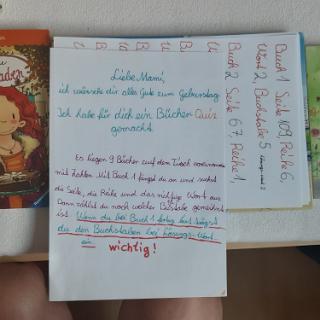 Liebe Mami,
ich wünsche dir alles Gute zum Geburtstag
Ich habe für dich ein Bücher Quiz
gemacht.
Es liegen 9 Bücher auf dem Tisch
mit Zahlen. Mit Buch 1 fängst du an und suchst
die Seite, die Reihe und das richtige Wort aus.
Dann zählst du noch welcher Bustabe gemeint
ist. Wenn du bei Buch 1 fertig bist trägst
du den Buchstaben bei Lösungs-Wort
ein. wichtig!
Buch 1 Seite 109, Reihe 6,
Wort 2, Buchstabe 5
Buch 2, Seite 67, Reihe 1,